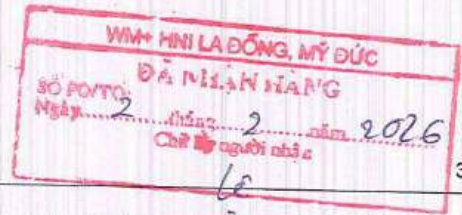 WM+ HNI LA ĐỒNG, MỸ ĐỨC
ĐÃ NHẬN HÀNG
SỐ PO/TO:
Ngày 2 tháng 2 năm 2026
Chữ ký người nhận
Lê
3